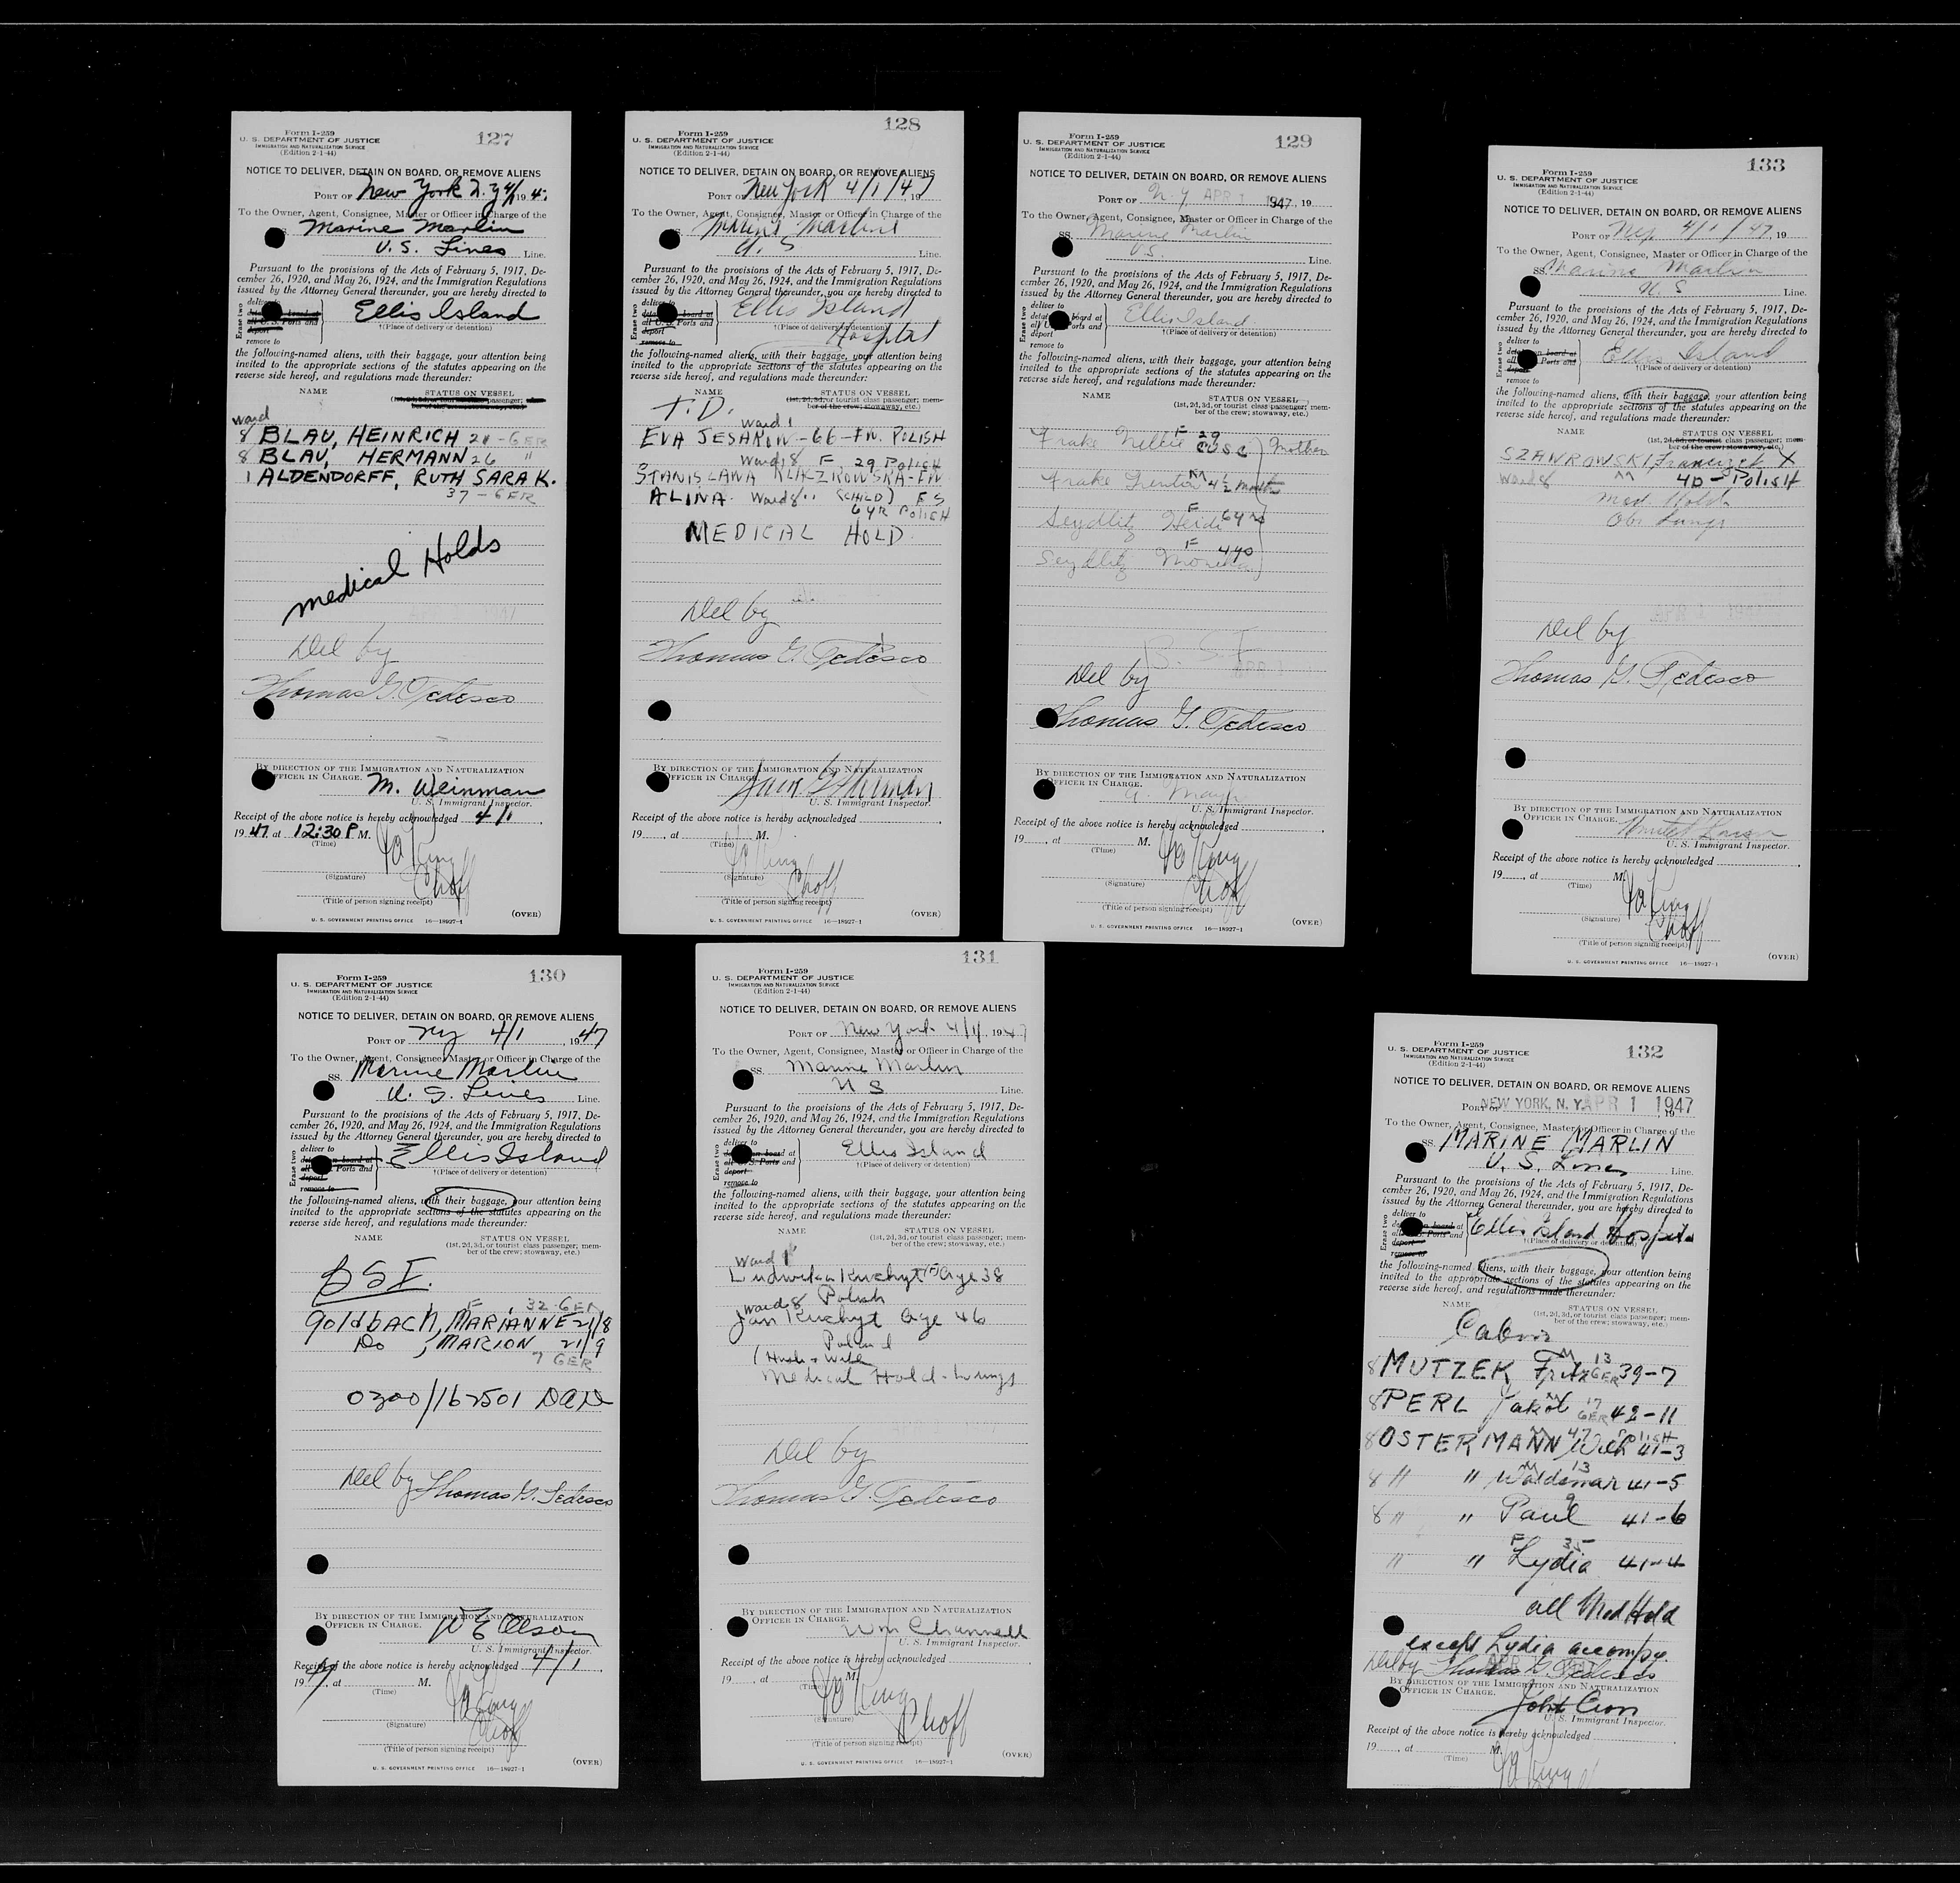 Form I-259
U. S. DEPARTMENT OF JUSTICE
IMMIGRATION AND NATURALIZATION SERVICE
(Edition 2-1-44)
127
NOTICE TO DELIVER, DETAIN ON BOARD, OR REMOVE ALIENS
PORT OF New York N.Y 4/1 19 4
To the Owner, Agent, Consignee, Master or Officer in Charge of the
Marine Marlin
U.S. Lines Line.
Pursuant to the provisions of the Acts of February 5, 1917, De-
cember 26, 1920, and May 26, 1924, and the Immigration Regulations
issued by the Attorney General thereunder, you are hereby directed to
Erase two
deliver to
board at
all U. S. Ports and
deport
Ellis Island
†(Place of delivery or detention)
the following-named aliens, with their baggage, your attention being
invited to the appropriate sections of the statutes appearing on the
reverse side hereof, and regulations made thereunder:
NAME STATUS ON VESSEL
ward
8 BLAU, HEINRICH 21 - GER
8 BLAU, HERMANN 26 "
1 ALDENDORFF, RUTH SARA K.
37 - GER
medical Holds
Del by
Thomas G. Tedesco
BY DIRECTION OF THE IMMIGRATION AND NATURALIZATION
OFFICER IN CHARGE.
M. Weinman
U. S. Immigrant Inspector.
Receipt of the above notice is hereby acknowledged 4/1
19 47, at 12:30 P M.
(Time)
King
(Signature)
Choff
(Title of person signing receipt)
U. S. GOVERNMENT PRINTING OFFICE 16—18927-1
(OVER)
Form I-259
U. S. DEPARTMENT OF JUSTICE
IMMIGRATION AND NATURALIZATION SERVICE
(Edition 2-1-44)
128
NOTICE TO DELIVER, DETAIN ON BOARD, OR REMOVE ALIENS
PORT OF New York 4/1/47, 19
To the Owner, Agent, Consignee, Master or Officer in Charge of the
U. S Line.
Pursuant to the provisions of the Acts of February 5, 1917, De-
cember 26, 1920, and May 26, 1924, and the Immigration Regulations
issued by the Attorney General thereunder, you are hereby directed to
Erase two
deliver to
board at
all U. S. Ports and
deport
remove to
Ellis Island
†(Place of delivery or detention)
Hospital
the following-named aliens, with their baggage, your attention being
invited to the appropriate sections of the statutes appearing on the
reverse side hereof, and regulations made thereunder:
NAME STATUS ON VESSEL
(1st, 2d, 3d, or tourist class passenger; mem-
ber of the crew; stowaway, etc.)
T. D.
Ward 1
EVA JESAKOW - 66 - FW. POLISH
Ward 8 F 29 Polish
STANISLAWA KLIKZKOWSKA - FW
ALINA - Ward 8 (CHILD) FS
6 YR POLISH
MEDICAL HOLD
Del by
Thomas G. Tedesco
BY DIRECTION OF THE IMMIGRATION AND NATURALIZATION
OFFICER IN CHARGE.
U. S. Immigrant Inspector.
Receipt of the above notice is hereby acknowledged
19 , at M.
(Time)
King
(Signature)
Choff
(Title of person signing receipt)
U. S. GOVERNMENT PRINTING OFFICE 16—18927-1
(OVER)
Form I-259
U. S. DEPARTMENT OF JUSTICE
IMMIGRATION AND NATURALIZATION SERVICE
(Edition 2-1-44)
129
NOTICE TO DELIVER, DETAIN ON BOARD, OR REMOVE ALIENS
PORT OF N. Y. APR 1 1947, 19
To the Owner, Agent, Consignee, Master or Officer in Charge of the
SS. Marine Marlin
U.S. Line.
Pursuant to the provisions of the Acts of February 5, 1917, De-
cember 26, 1920, and May 26, 1924, and the Immigration Regulations
issued by the Attorney General thereunder, you are hereby directed to
Erase two
deliver to
board at
all U. Ports and
deport
remove to
Ellis Island
†(Place of delivery or detention)
the following-named aliens, with their baggage, your attention being
invited to the appropriate sections of the statutes appearing on the
reverse side hereof, and regulations made thereunder:
NAME STATUS ON VESSEL
(1st, 2d, 3d, or tourist class passenger; mem-
ber of the crew; stowaway, etc.)
Frake Nellie F 29 USC Mother
Frake M 4½ month
Seydlitz Heidi F 6 yrs
Seydlitz Monika F 4 yo
B. S. I
APR 1
Del by
Thomas G. Tedesco
BY DIRECTION OF THE IMMIGRATION AND NATURALIZATION
OFFICER IN CHARGE.
U. S. Immigrant Inspector.
Receipt of the above notice is hereby acknowledged
19 , at M.
(Time)
King
(Signature)
Choff
(Title of person signing receipt)
U. S. GOVERNMENT PRINTING OFFICE 16—18927-1
(OVER)
Form I-259
U. S. DEPARTMENT OF JUSTICE
IMMIGRATION AND NATURALIZATION SERVICE
(Edition 2-1-44)
133
NOTICE TO DELIVER, DETAIN ON BOARD, OR REMOVE ALIENS
PORT OF Ny 4/1/47, 19
To the Owner, Agent, Consignee, Master or Officer in Charge of the
SS. Marine Marlin
U. S Line.
Pursuant to the provisions of the Acts of February 5, 1917, De-
cember 26, 1920, and May 26, 1924, and the Immigration Regulations
issued by the Attorney General thereunder, you are hereby directed to
Erase two
deliver to
on board at
all Ports and
deport
remove to
Ellis Island
†(Place of delivery or detention)
the following-named aliens, with their baggage, your attention being
invited to the appropriate sections of the statutes appearing on the
reverse side hereof, and regulations made thereunder:
NAME STATUS ON VESSEL
(1st, 2d, 3d, or tourist class passenger; mem-
ber of the crew; stowaway, etc.)
SZAWROWSKI, Franciszek X
Ward 8 M 40 - Polish
Med Hold
Obs Lungs
APR 1 1947
Del by
Thomas G. Tedesco
BY DIRECTION OF THE IMMIGRATION AND NATURALIZATION
OFFICER IN CHARGE.
U. S. Immigrant Inspector.
Receipt of the above notice is hereby acknowledged
19 , at M.
(Time)
King
(Signature)
Choff
(Title of person signing receipt)
U. S. GOVERNMENT PRINTING OFFICE 16—18927-1
(OVER)
Form I-259
U. S. DEPARTMENT OF JUSTICE
IMMIGRATION AND NATURALIZATION SERVICE
(Edition 2-1-44)
130
NOTICE TO DELIVER, DETAIN ON BOARD, OR REMOVE ALIENS
PORT OF NY 4/1, 1947
To the Owner, Agent, Consignee, Master or Officer in Charge of the
SS. Marine Marlin
U. S. Lines Line.
Pursuant to the provisions of the Acts of February 5, 1917, De-
cember 26, 1920, and May 26, 1924, and the Immigration Regulations
issued by the Attorney General thereunder, you are hereby directed to
Erase two
deliver to
on board at
all Ports and
deport
remove to
Ellis Island
†(Place of delivery or detention)
the following-named aliens, with their baggage, your attention being
invited to the appropriate sections of the statutes appearing on the
reverse side hereof, and regulations made thereunder:
NAME STATUS ON VESSEL
(1st, 2d, 3d, or tourist class passenger; mem-
ber of the crew; stowaway, etc.)
BSI.
F 32 GER
Goldbach, MARIANNE 21/8
Do , MARION 21/9
7 GER
0300/162501
Del by Thomas G. Tedesco
BY DIRECTION OF THE IMMIGRATION AND NATURALIZATION
OFFICER IN CHARGE.
W E Olson
U. S. Immigrant Inspector.
Receipt of the above notice is hereby acknowledged 4/1
19 47, at M.
(Time)
King
(Signature)
Choff
(Title of person signing receipt)
U. S. GOVERNMENT PRINTING OFFICE 16—18927-1
(OVER)
Form I-259
U. S. DEPARTMENT OF JUSTICE
IMMIGRATION AND NATURALIZATION SERVICE
(Edition 2-1-44)
131
NOTICE TO DELIVER, DETAIN ON BOARD, OR REMOVE ALIENS
PORT OF New York 4/1, 1947
To the Owner, Agent, Consignee, Master or Officer in Charge of the
SS. Marine Marlin
U S Line.
Pursuant to the provisions of the Acts of February 5, 1917, De-
cember 26, 1920, and May 26, 1924, and the Immigration Regulations
issued by the Attorney General thereunder, you are hereby directed to
Erase two
deliver to
on board at
all U. S. Ports and
deport
remove to
Ellis Island
†(Place of delivery or detention)
the following-named aliens, with their baggage, your attention being
invited to the appropriate sections of the statutes appearing on the
reverse side hereof, and regulations made thereunder:
NAME STATUS ON VESSEL
(1st, 2d, 3d, or tourist class passenger; mem-
ber of the crew; stowaway, etc.)
Ward 1
Ludwika Kuchyt (F) Age 38
Ward 8 Polish
Jan Kuchyt Age 46
Poland
(Husb + Wife
Medical Hold - Lungs
Del by
Thomas G. Tedesco
BY DIRECTION OF THE IMMIGRATION AND NATURALIZATION
OFFICER IN CHARGE.
Wm Channell
U. S. Immigrant Inspector.
Receipt of the above notice is hereby acknowledged
19 , at M.
(Time)
King
(Signature)
Choff
(Title of person signing receipt)
U. S. GOVERNMENT PRINTING OFFICE 16—18927-1
(OVER)
Form I-259
U. S. DEPARTMENT OF JUSTICE
IMMIGRATION AND NATURALIZATION SERVICE
(Edition 2-1-44)
132
NOTICE TO DELIVER, DETAIN ON BOARD, OR REMOVE ALIENS
PORT OF NEW YORK, N. Y. APR 1 1947
To the Owner, Agent, Consignee, Master or Officer in Charge of the
SS. MARINE MARLIN
U. S. Lines Line.
Pursuant to the provisions of the Acts of February 5, 1917, De-
cember 26, 1920, and May 26, 1924, and the Immigration Regulations
issued by the Attorney General thereunder, you are hereby directed to
Erase two
deliver to
on board at
all Ports and
deport
remove to
Ellis Island Hospital
†(Place of delivery or detention)
the following-named aliens, with their baggage, your attention being
invited to the appropriate sections of the statutes appearing on the
reverse side hereof, and regulations made thereunder:
NAME STATUS ON VESSEL
(1st, 2d, 3d, or tourist class passenger; mem-
ber of the crew; stowaway, etc.)
Cabin
8 MUTZEK Fritz M 13 GER 39-7
8 PERL Jakob M 17 GER 42-11
8 OSTERMANN M 47 POLISH 41-3
8 " " Waldemar M 13 41-5
8 " " Paul 9 41-6
" " Lydia F 35 41-4
all Med Hold
except Lydia accompy.
Del by Thomas G. Tedesco
BY DIRECTION OF THE IMMIGRATION AND NATURALIZATION
OFFICER IN CHARGE.
U. S. Immigrant Inspector.
Receipt of the above notice is hereby acknowledged
19 , at M.
(Time)
King